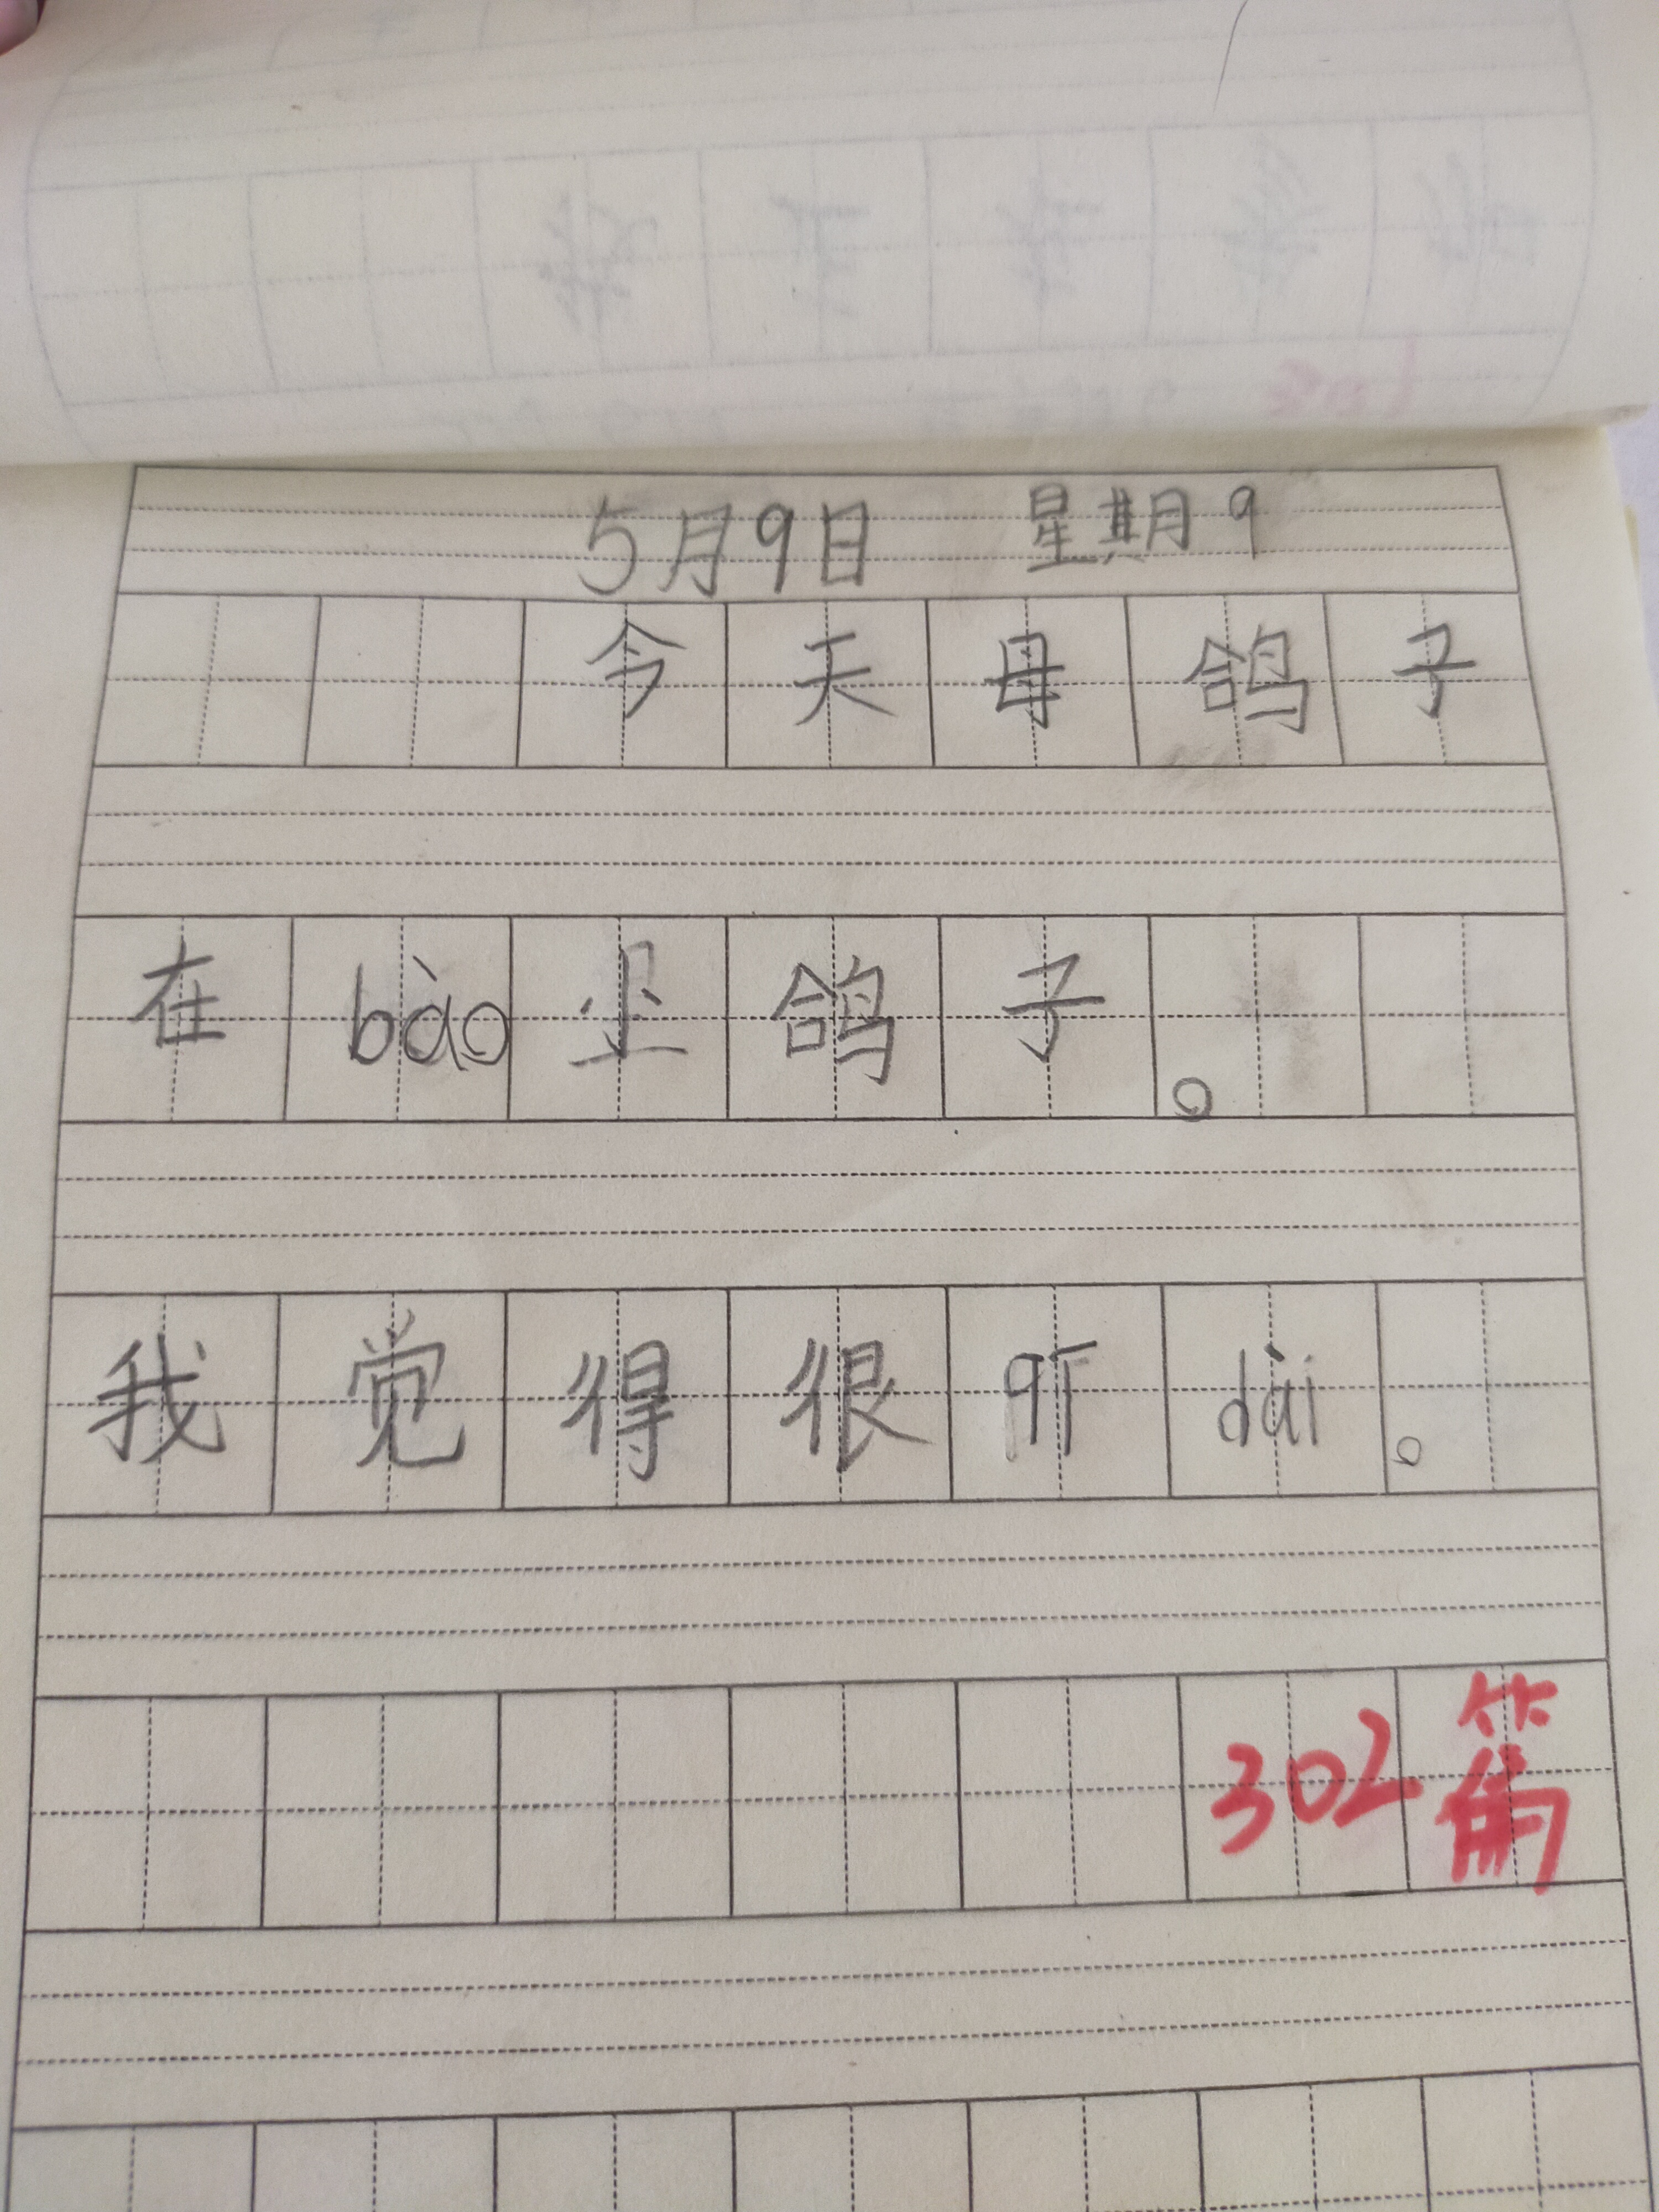 5月9日 星期9
今天母鸽子
在bào鸽子。
我觉得很dài。
302篇